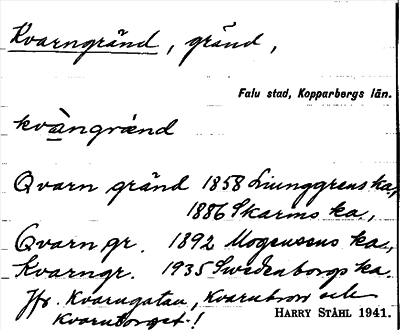 Kvarngränd, gränd,
Falu stad, Kopparbergs län.
kvàngränd
Qvarn gränd 1858 Ljunggrens ka.,
1886 Skarins ka.,
Qvarngr. 1892 Mogensens ka.,
Kvarngr. 1935 Swedenborgs ka.
Jfr. Kvarngatan, Kvarnbron och
Kvarntorget!
HARRY STÅHL 1941.